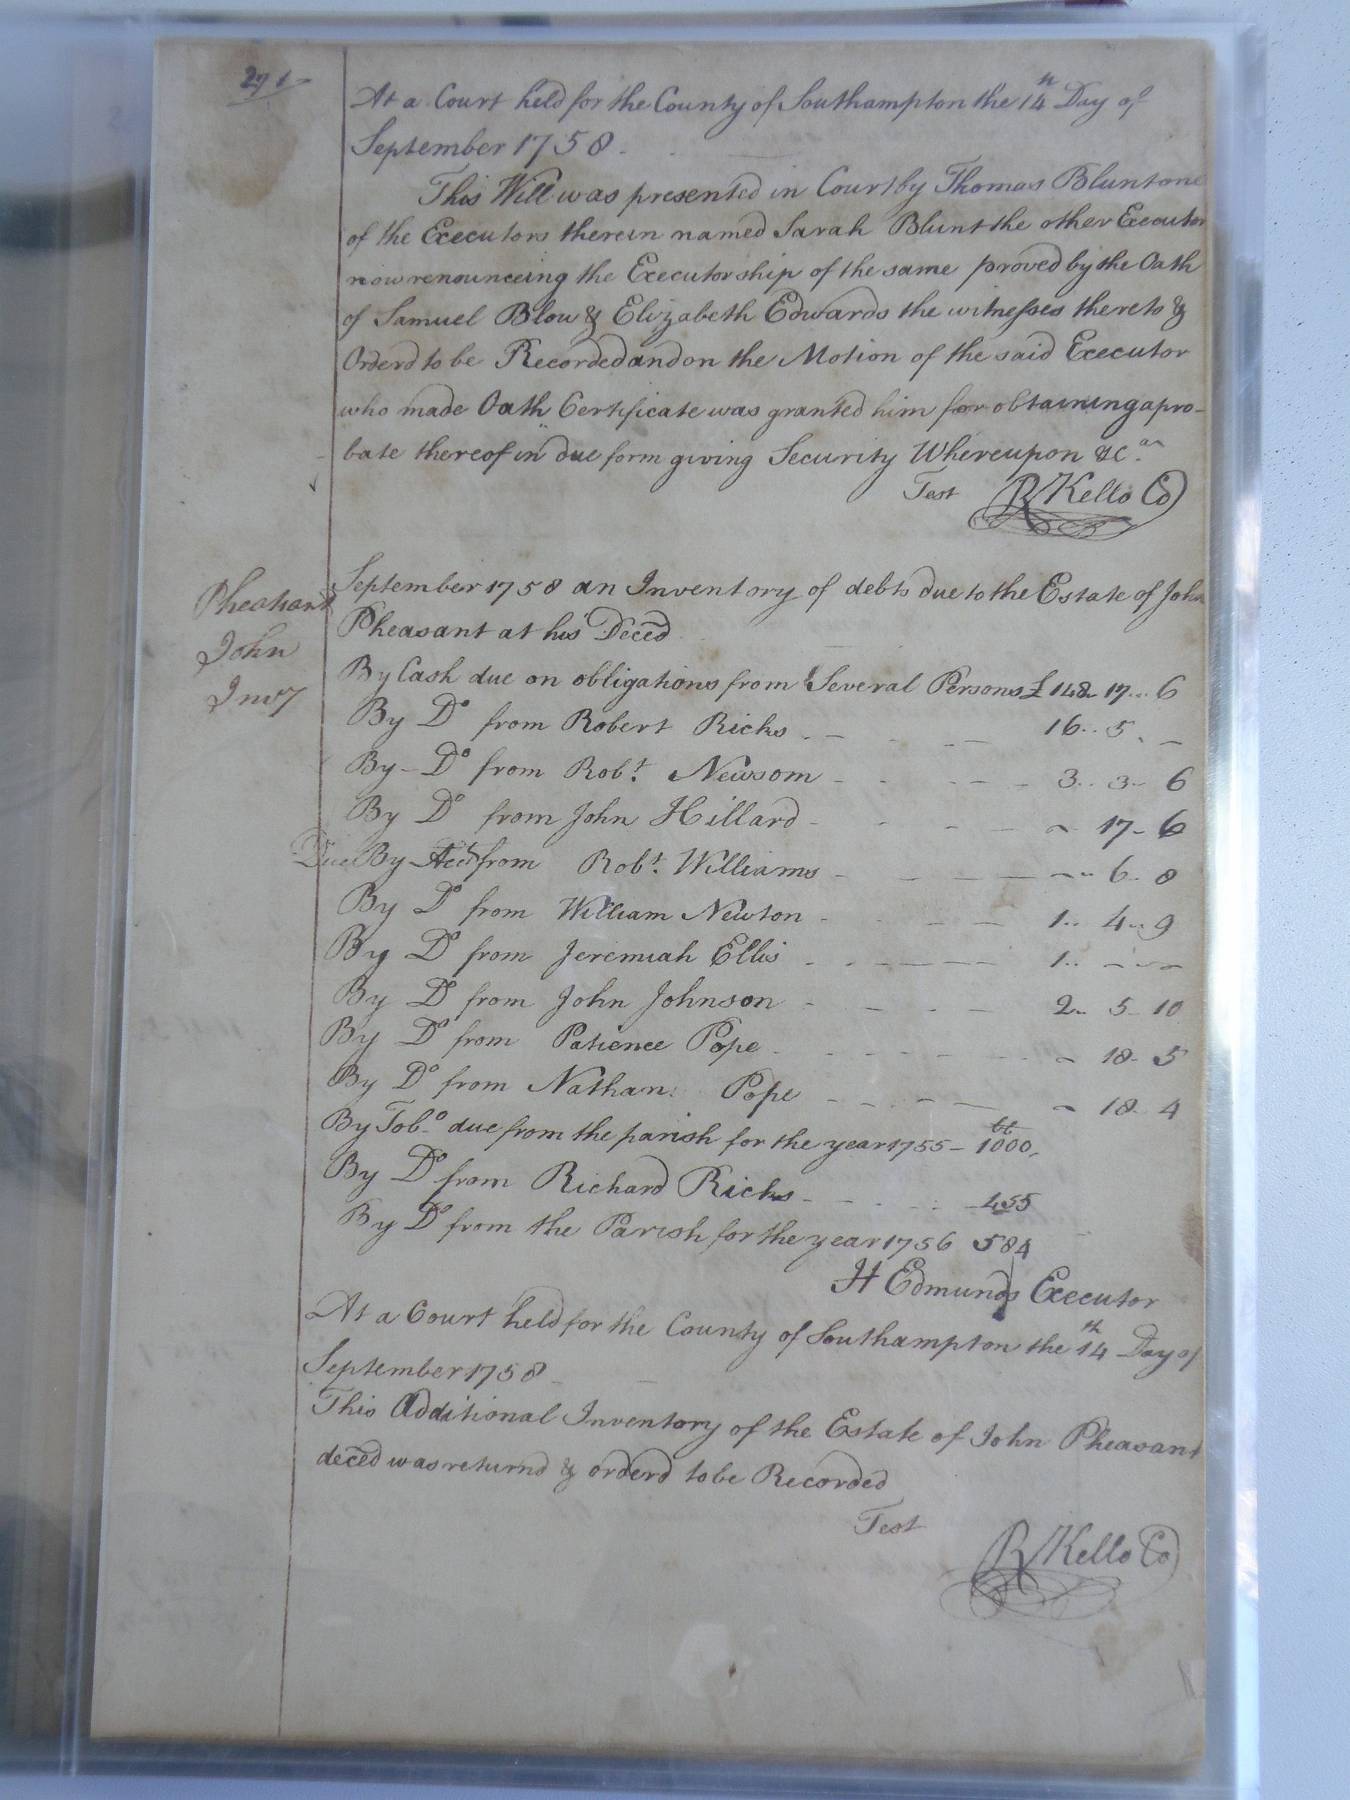 271
At a Court held for the County of Southampton the 14th Day of
September 1758.
This Will was presented in Court by Thomas Blunt one
of the Executors therein named Sarah Blunt the other Executor
now renounceing the Executorship of the same proved by the Oath
of Samuel Blow & Elizabeth Edwards the witnesses thereto &
Orderd to be Recorded and on the Motion of the said Executor
who made Oath Certificate was granted him for obtaining a pro-
bate thereof in due form giving Security Whereupon &c.
Test R Kello Co
Pheasant
John
Invy
September 1758 an Inventory of debts due to the Estate of John
Pheasant at his Deced
By Cash due on obligations from Several Persons £ 148 .. 17 .. 6
By Do from Robert Ricks - - - 16 .. 5 . -
By - Do from Robt. Newsom - - - 3 .. 3 .. 6
By Do from John Hillard - - - 17 - 6
Due By Acct from Robt. Williams - - - 6 - 8
By Do from William Newton - - - 1 .. 4 .. 9
By Do from Jeremiah Ellis - - - 1 .. - -
By Do from John Johnson - - - 2 .. 5 - 10
By Do from Patience Pope - - - 18 - 5
By Do from Nathan Pope - - - 18 - 4
By Tobo. due from the parish for the year 1755 - 1000
By Do from Richard Ricks - - - 455
By Do from the Parish for the year 1756 584
H Edmunds Executor
At a Court held for the County of Southampton the 14th Day of
September 1758 -
This Additional Inventory of the Estate of John Pheasant
deced was returnd & orderd to be Recorded
Test R Kello Co